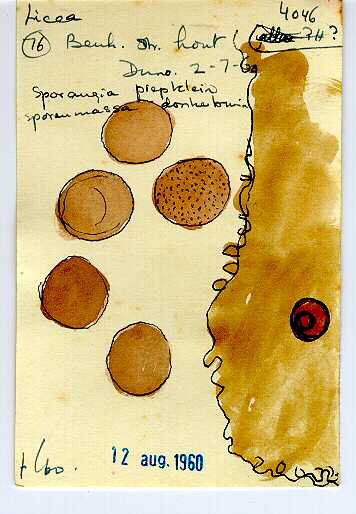 Licea
4046
76 Beuk. hout
?H?
Duno. 2-7-60
Sporangia piepklein
sporenmassa donkerbruin
12 aug. 1960